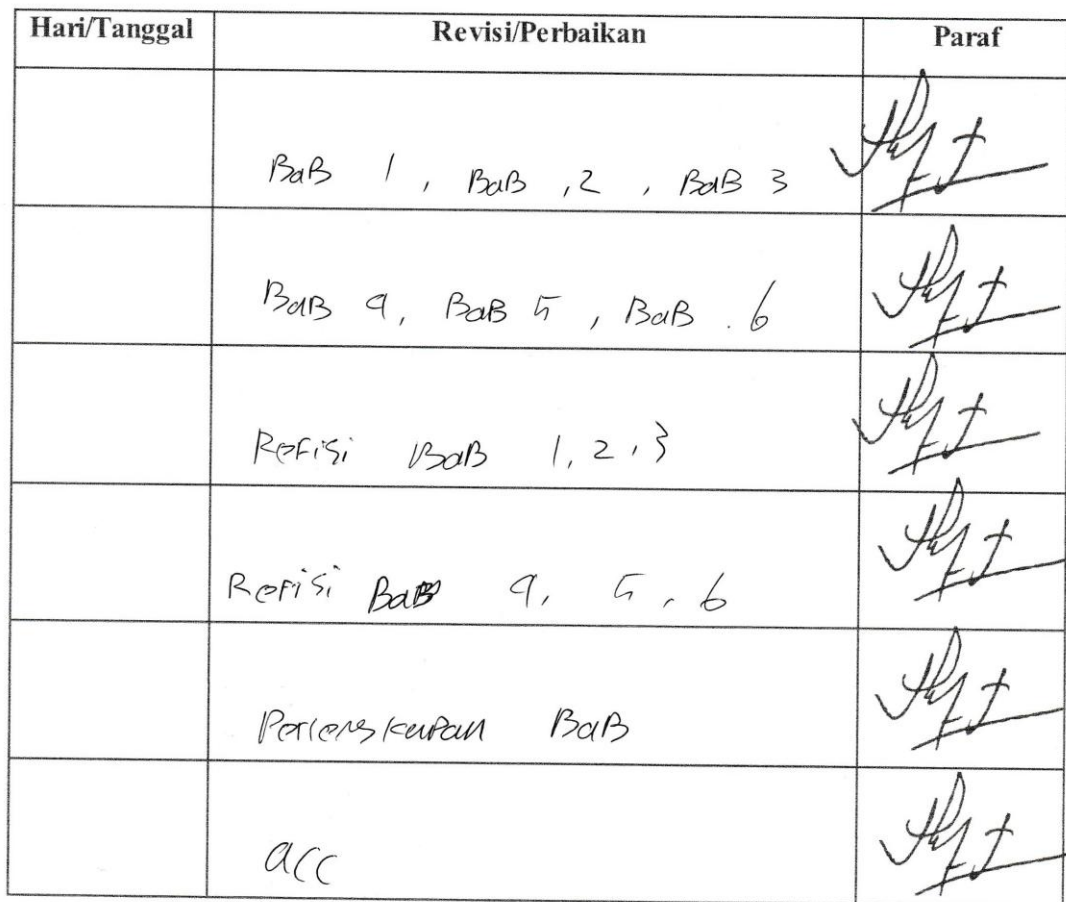 Hari/Tanggal Revisi/Perbaikan Paraf
BaB 1, BaB ,2, BaB 3
BaB 4, BaB 5, BaB .6
Refisi BaB 1,2,3
Refisi BaB 4, 5, 6
Perlengkapan BaB
acc